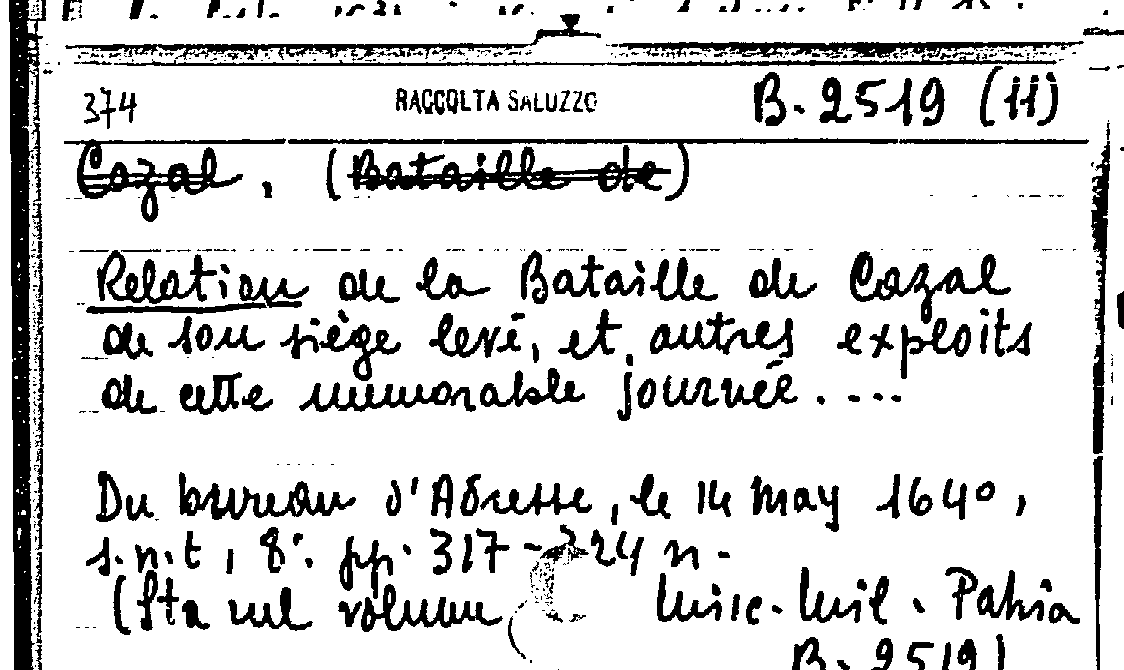 374 RACCOLTA SALUZZO B. 2519 (11)
Cazal, (Bataille de)
Relation de la Bataille de Cazal
de son siège levé, et autres exploits
de cette memorable journée....
Du bureau d'Adresse, le 14 May 1640,
s.n.t, 8°. pp. 317-324 n.
(Sta nel volume Misc. Mil. Patria
B. 2519)